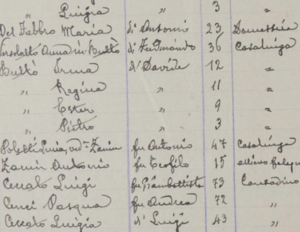 " Luigia " 3 "
Del Febbro Maria d' Antonio 23 Domestica
Anna in Bultò d' Ferdinando 36 Casalinga
Bultò Irma d' Davide 12 "
" Regina " 11 "
" Ester " 9 "
" Pietro " 3 "
in Zanin fu Antonio 47 Casalinga
Zanin Antonio fu Teofilo 15
Cerato Luigi fu Giambattista 73 Contadino
Cenci Pasqua fu Andrea 72 "
Cerato Luigia d' Luigi 43 "